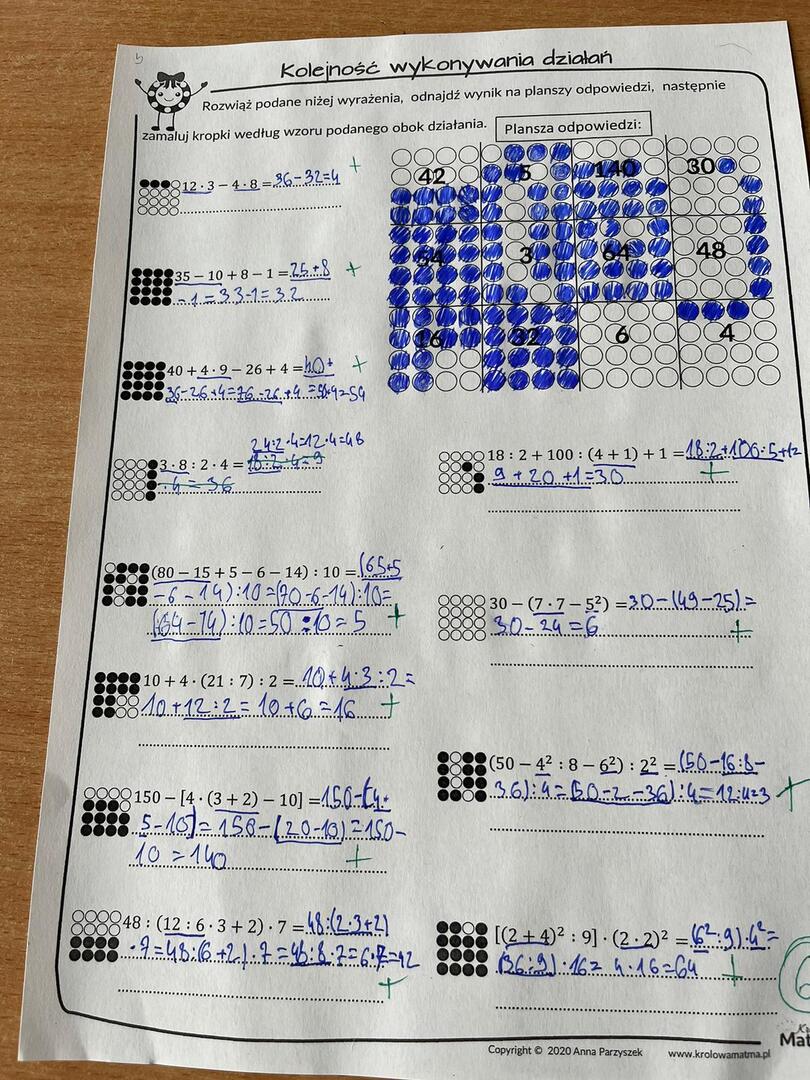 Kolejność wykonywania działań
Rozwiąż podane niżej wyrażenia, odnajdź wynik na planszy odpowiedzi, następnie
zamaluj kropki według wzoru podanego obok działania. Plansza odpowiedzi:
42 5 140 30
54 3 64 48
16 32 6 4
12 · 3 − 4 · 8 = 36-32=4 +
35 − 10 + 8 − 1 = 25+8 +
-1=33-1=32
40 + 4 · 9 − 26 + 4 = 40+ +
36-26+4=76-26+4=50+4=54
24:2·4=12·4=48
3 · 8 : 2 · 4 = 18:2·4=9
·4=36
(80 − 15 + 5 − 6 − 14) : 10 = (65+5
-6-14):10=(70-6-14):10=
(64-14):10=50:10=5 +
10 + 4 · (21 : 7) : 2 = 10+4·3:2=
10+12:2=10+6=16 +
150 − [4 · (3 + 2) − 10] = 150-[4·
5-10]=150-[20-10]=150-
10=140 +
48 : (12 : 6 · 3 + 2) · 7 = 48:(2·3+2)
·7=48:(6+2)·7=48:8·7=6·7=42
+
18 : 2 + 100 : (4 + 1) + 1 = 18:2+100:5+1=
9+20+1=30 +
30 − (7 · 7 − 5²) = 30-(49-25)=
30-24=6 +
(50 − 4² : 8 − 6²) : 2² = (50-16:8-
36):4=(50-2-36):4=12:4=3 +
[(2 + 4)² : 9] · (2 · 2)² = (6²:9)·4²=
(36:9)·16=4·16=64 +
6
Copyright © 2020 Anna Parzyszek www.krolowamatma.pl